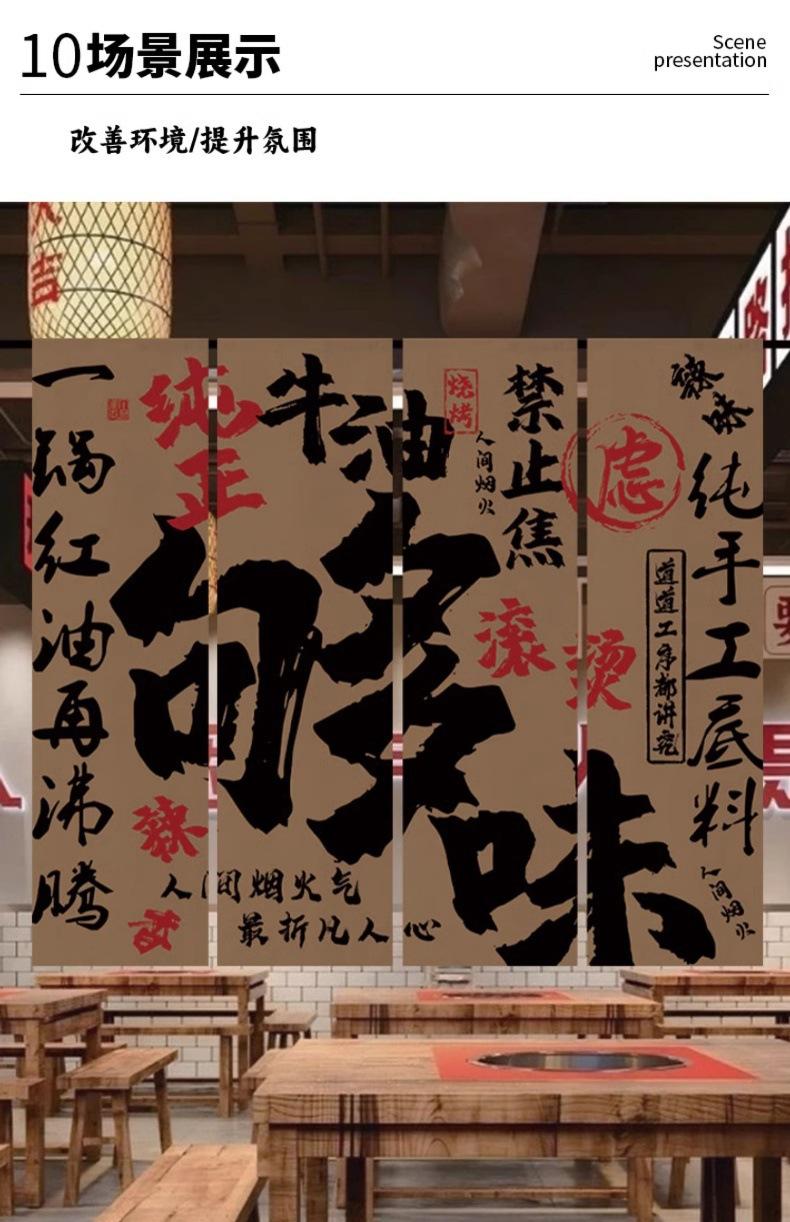 10场景展示
Scene
presentation
改善环境/提升氛围
大吉
一锅红油再沸腾
纯正
牛油
够味
辣
人间烟火气
最折凡人心
烧烤
人间烟火
禁止焦虑
滚烫
道道工序都讲究
纯手工底料
人间烟火